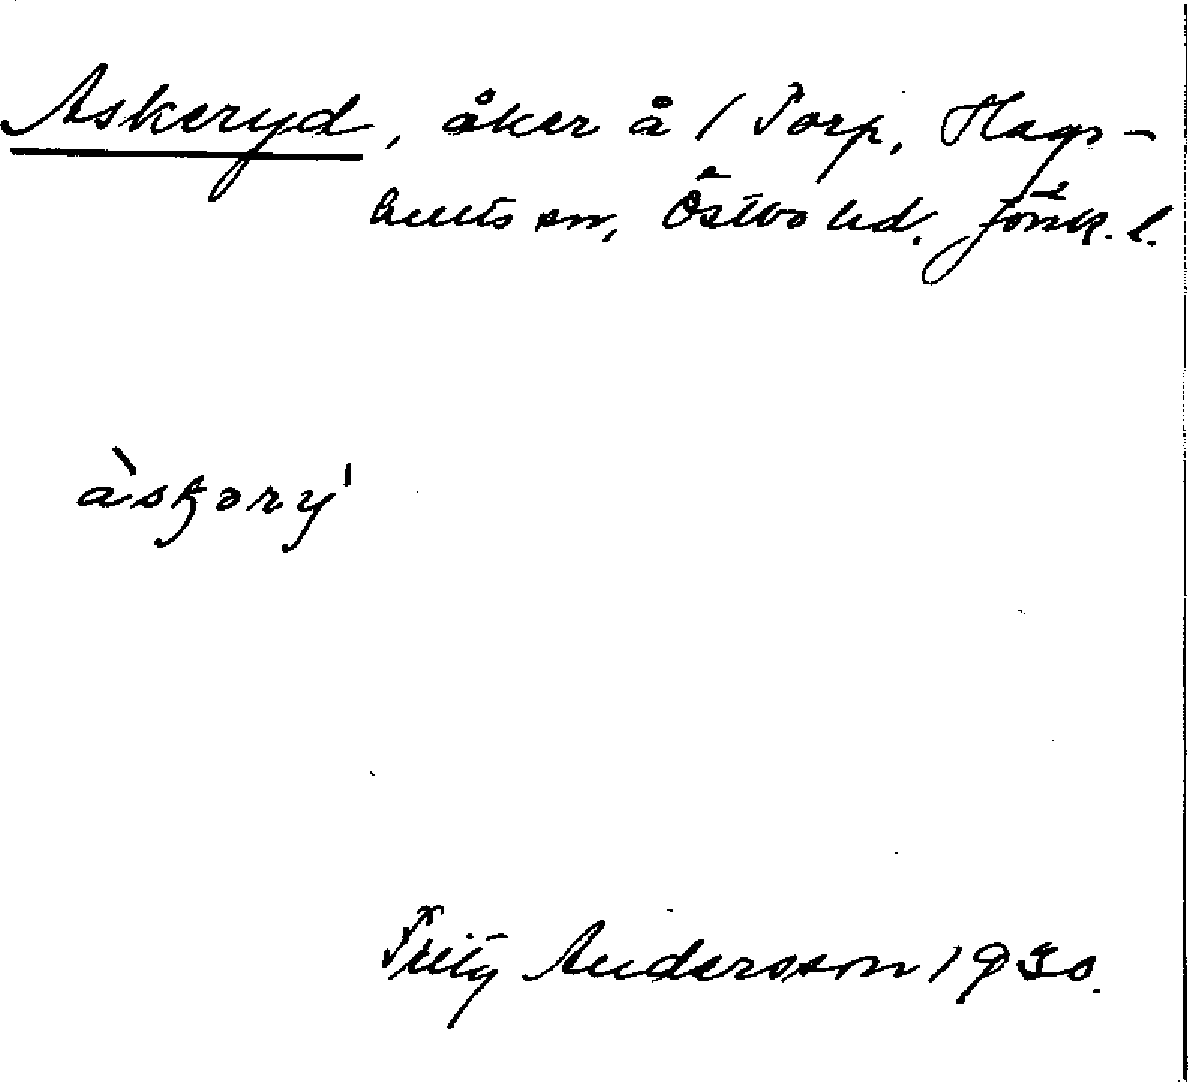 Askeryd, åker å 1 Torp, Hags-
hults sn, Östbo hd. Jönk. l.
àskəry'
Andersson 1930.